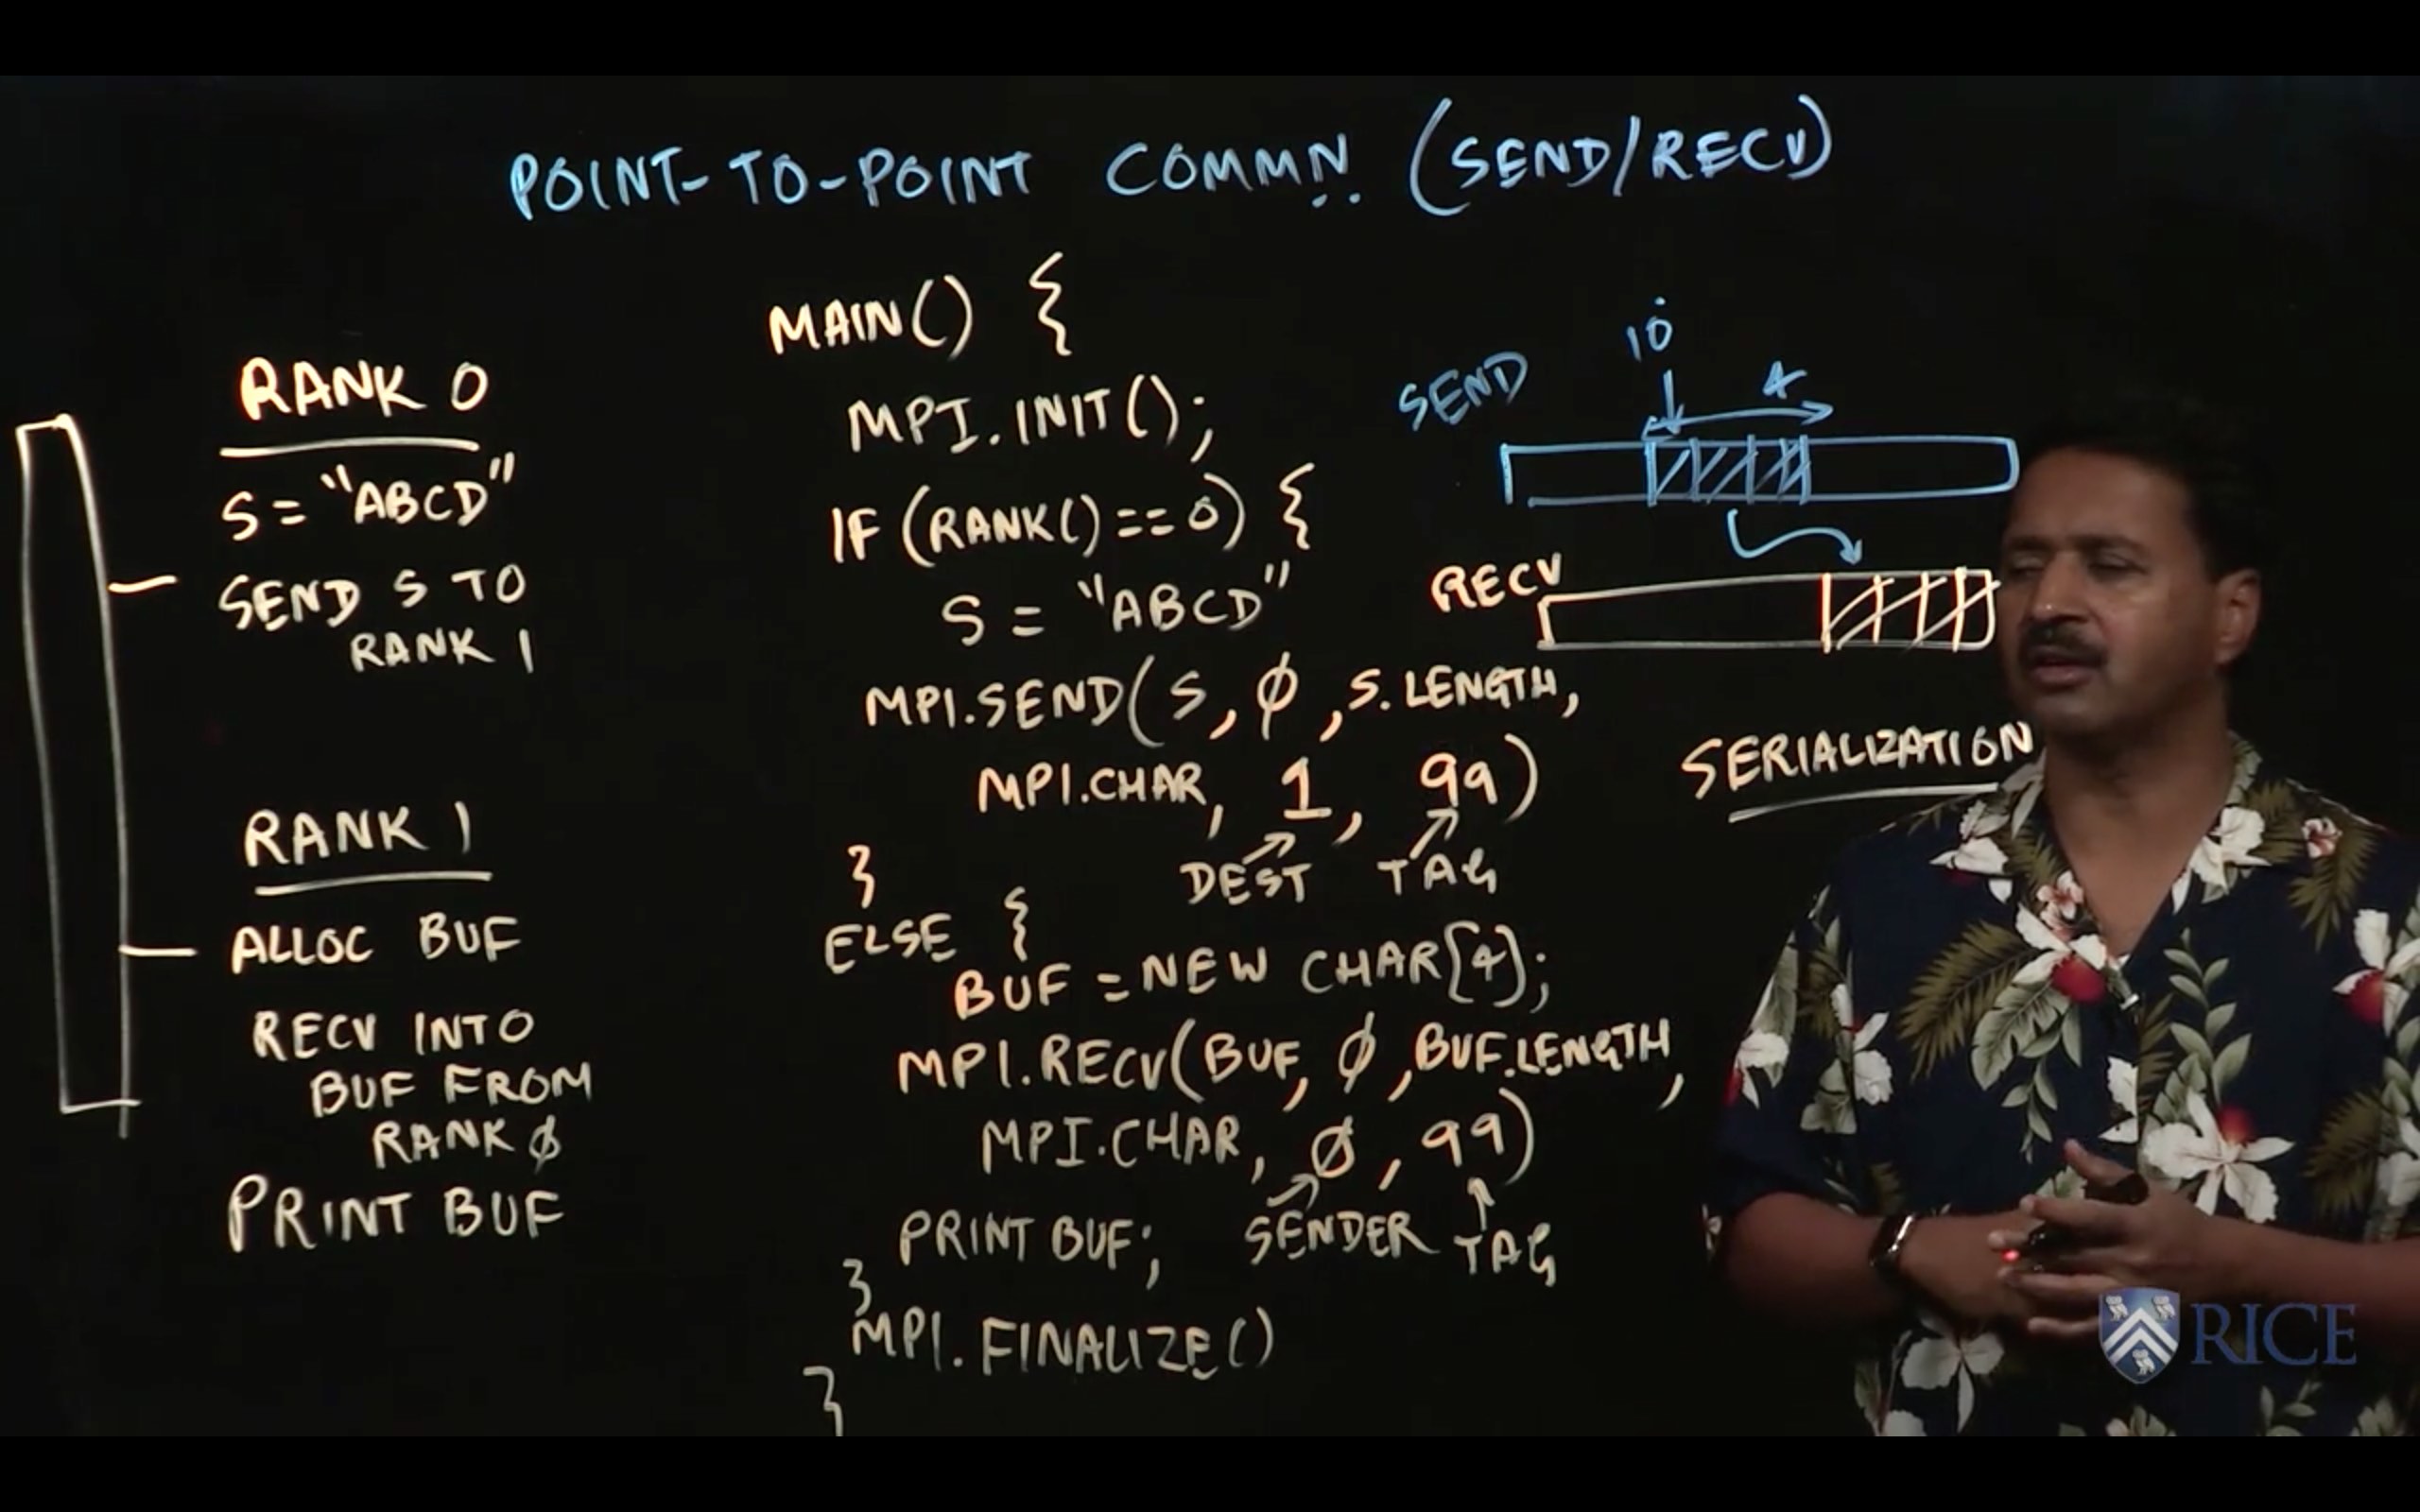 POINT-TO-POINT COMMN. (SEND/RECV)
RANK 0
S = "ABCD"
SEND S TO
RANK 1
RANK 1
ALLOC BUF
RECV INTO
BUF FROM
RANK Ø
PRINT BUF
MAIN() {
MPI.INIT();
IF (RANK() == 0) {
S = "ABCD"
MPI.SEND(S, Ø, S.LENGTH,
MPI.CHAR, 1, 99)
DEST TAG
}
ELSE {
BUF = NEW CHAR[4];
MPI.RECV(BUF, Ø, BUF.LENGTH,
MPI.CHAR, Ø, 99)
PRINT BUF; SENDER TAG
}
MPI.FINALIZE()
}
10
SEND 4
RECV
SERIALIZATION
RICE